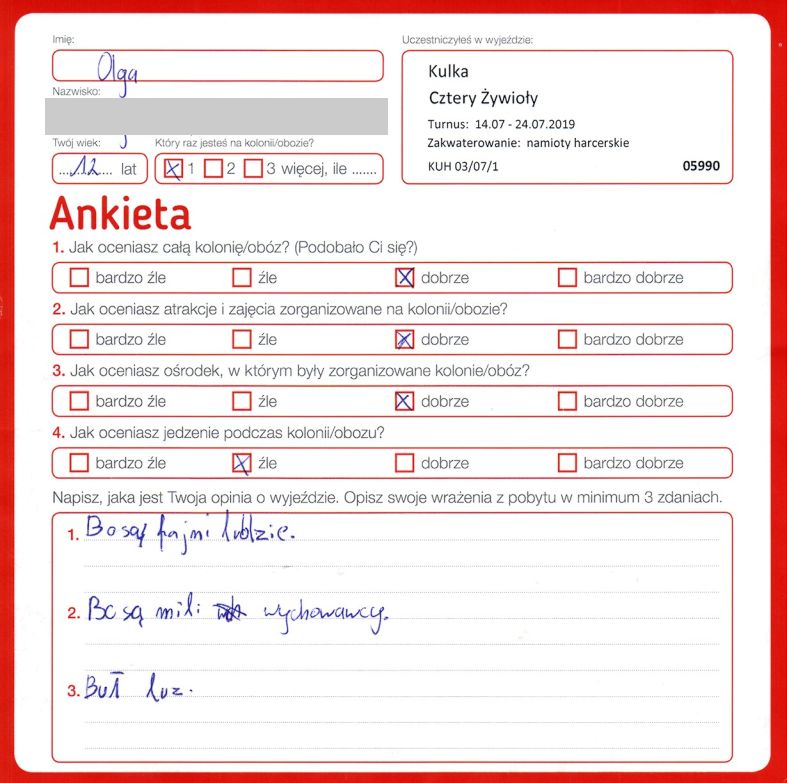 Imię:
Olga
Uczestniczyłeś w wyjeździe:
Kulka
Cztery Żywioły
Turnus: 14.07 - 24.07.2019
Zakwaterowanie: namioty harcerskie
KUH 03/07/1 05990
Nazwisko:
Twój wiek: Który raz jesteś na kolonii/obozie?
....12.... lat 1 2 3 więcej, ile .......
Ankieta
1. Jak oceniasz całą kolonię/obóz? (Podobało Ci się?)
bardzo źle źle dobrze bardzo dobrze
2. Jak oceniasz atrakcje i zajęcia zorganizowane na kolonii/obozie?
bardzo źle źle dobrze bardzo dobrze
3. Jak oceniasz ośrodek, w którym były zorganizowane kolonie/obóz?
bardzo źle źle dobrze bardzo dobrze
4. Jak oceniasz jedzenie podczas kolonii/obozu?
bardzo źle źle dobrze bardzo dobrze
Napisz, jaka jest Twoja opinia o wyjeździe. Opisz swoje wrażenia z pobytu w minimum 3 zdaniach.
1. Bo są fajni ludzie.
2. Bo są mili wychowawcy.
3. Był luz.